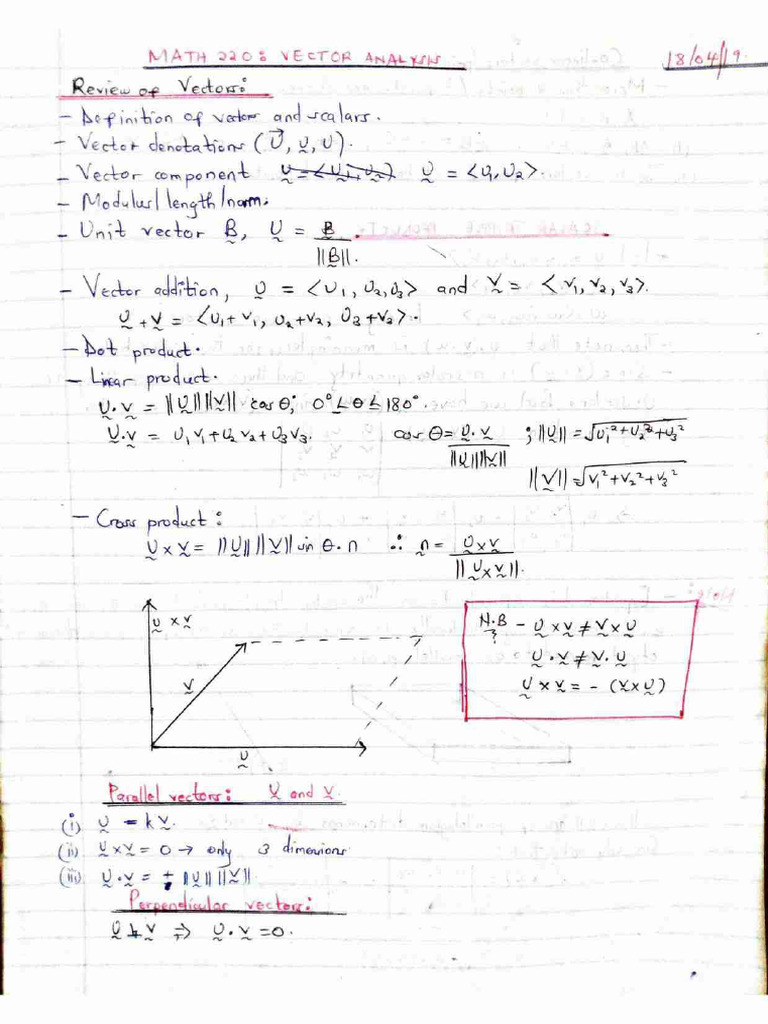 MATH 220: VECTOR ANALYSIS 18/04/19.
Review of Vectors:
- Definition of vector and scalars.
- Vector denotations (U⃗, Ṵ, U).
- Vector component Ṵ = <U₁, U₂> Ṵ = <U₁, U₂>.
- Modulus/length/norm.
- Unit vector B̰, Ṵ = B̰ / ||B̰||.
- Vector addition, Ṵ = <U₁, U₂, U₃> and V̰ = <V₁, V₂, V₃>.
Ṵ + V̰ = <U₁+V₁, U₂+V₂, U₃+V₃>.
- Dot product.
- Linear product.
Ṵ·V̰ = ||Ṵ|| ||V̰|| cos θ; 0° ≤ θ ≤ 180°.
Ṵ·V̰ = U₁V₁ + U₂V₂ + U₃V₃. cos θ = Ṵ·V̰ / ||Ṵ|| ||V̰|| ; ||Ṵ|| = √U₁² + U₂² + U₃²
||V̰|| = √V₁² + V₂² + V₃²
- Cross product:
Ṵ × V̰ = ||Ṵ|| ||V̰|| sin θ · n ∴ n̰ = Ṵ × V̰ / ||Ṵ × V̰||.
Ṵ × V̰
V̰
Ṵ
N.B - Ṵ × V̰ ≠ V̰ × Ṵ
Ṵ · V̰ ≠ V̰ · Ṵ
Ṵ × V̰ = - (V̰ × Ṵ)
Parallel vectors: Ṵ and V̰.
(i) Ṵ = kV̰.
(ii) Ṵ × V̰ = 0 → only 3 dimensions
(iii) Ṵ·V̰ = ± ||Ṵ|| ||V̰||
Perpendicular vectors:
Ṵ ⊥ V̰ ⇒ Ṵ · V̰ = 0.